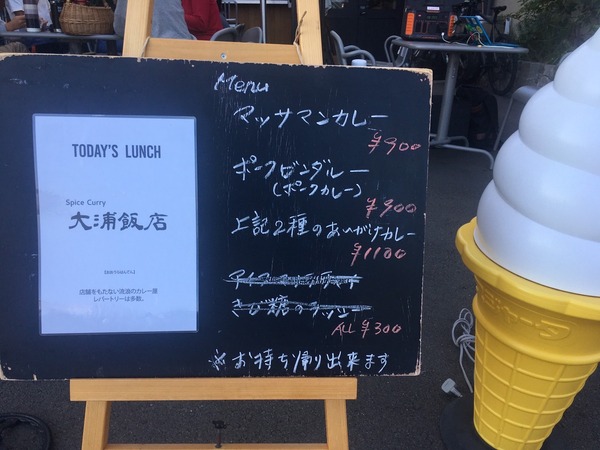 TODAY'S LUNCH
Spice Curry
大浦飯店
【おおうらはんてん】
店舗をもたない流浪のカレー屋
レパートリーは多数。
Menu
マッサマンカレー
¥900
ポークビンダルー
(ポークカレー)
¥900
上記2種のあいがけカレー
¥1100
きび糖のラッシー
ALL ¥300
※お持ち帰り出来ます